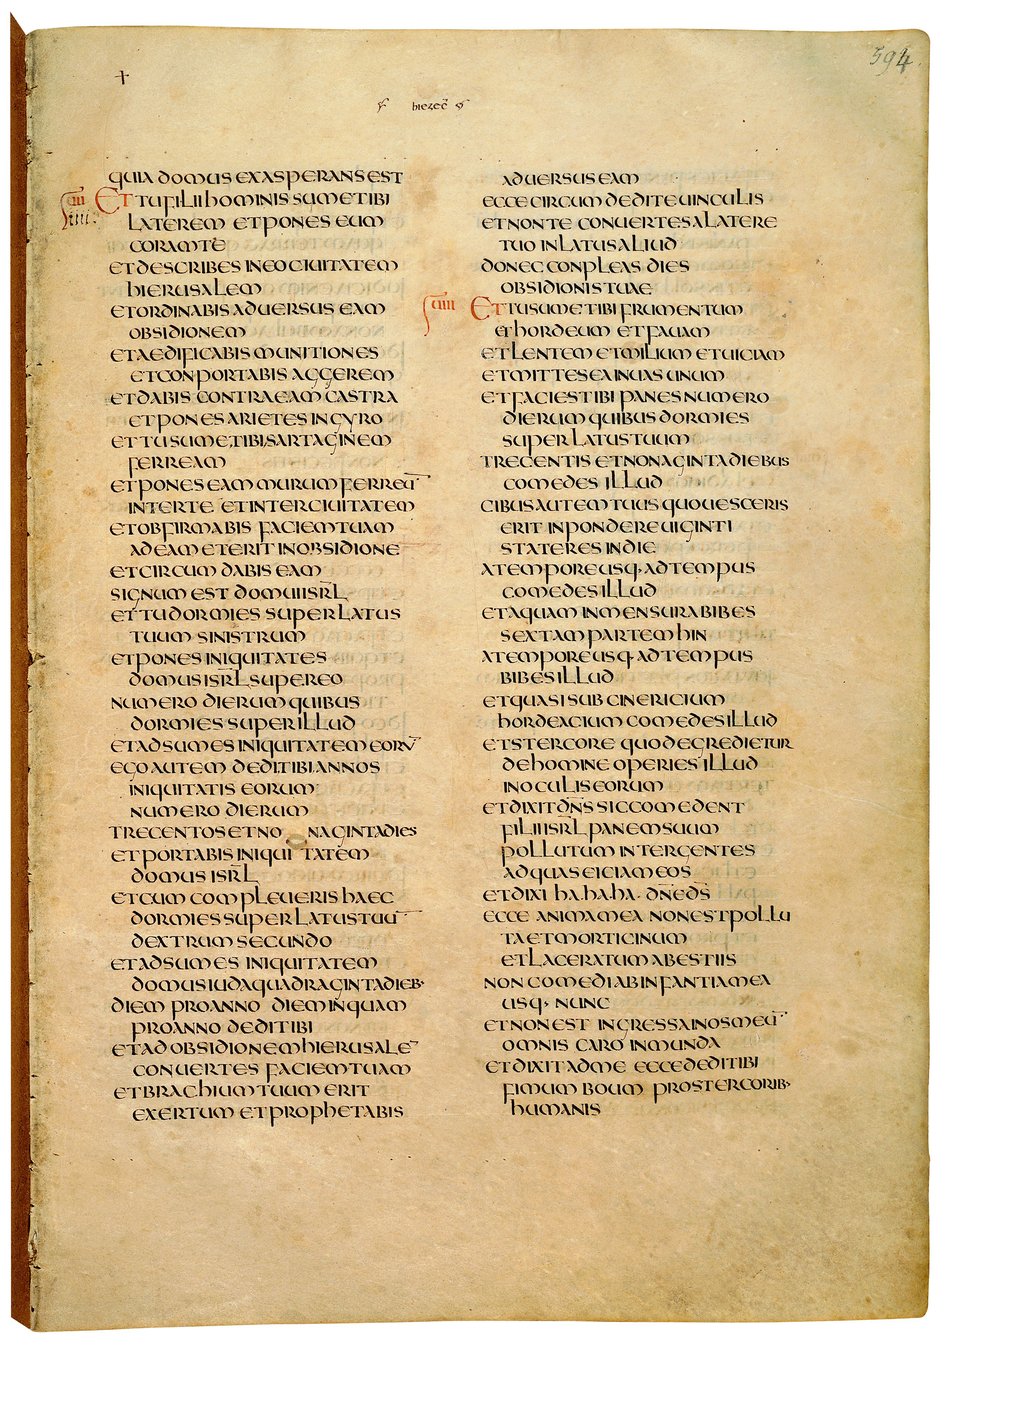 594
hiezec̄
QUIA DOMUS EXASPERANS EST
IIII ET TU FILII HOMINIS SUME TIBI
IIII.
LATEREM ET PONES EUM
CORAM TE
ET DESCRIBES IN EO CIUITATEM
HIERUSALEM
ET ORDINABIS ADUERSUS EAM
OBSIDIONEM
ET AEDIFICABIS MUNITIONES
ET CONPORTABIS AGGEREM
ET DABIS CONTRA EAM CASTRA
ET PONES ARIETES IN GYRO
ET TU SUME TIBI SARTAGINEM
FERREAM
ET PONES EAM MURUM FERREŪ
INTER TE ET INTER CIUITATEM
ET OBFIRMABIS FACIEM TUAM
AD EAM ET ERIT IN OBSIDIONE
ET CIRCUMDABIS EAM
SIGNUM EST DOMUI ISR̄L
ET TU DORMIES SUPER LATUS
TUUM SINISTRUM
ET PONES INIQUITATES
DOMUS ISR̄L SUPER EO
NUMERO DIERUM QUIBUS
DORMIES SUPER ILLUD
ET ADSUMES INIQUITATEM EORŪ
EGO AUTEM DEDI TIBI ANNOS
INIQUITATIS EORUM
NUMERO DIERUM
TRECENTOS ET NONAGINTA DIES
ET PORTABIS INIQUITATEM
DOMUS ISR̄L
ET CUM COMPLEUERIS HAEC
DORMIES SUPER LATUS TUŪ
DEXTRUM SECUNDO
ET ADSUMES INIQUITATEM
DOMUS IUDA QUADRAGINTA DIEB·
DIEM PRO ANNO DIEM INQUAM
PRO ANNO DEDI TIBI
ET AD OBSIDIONEM HIERUSALE̅
CONUERTES FACIEM TUAM
ET BRACHIUM TUUM ERIT
EXERTUM ET PROPHETABIS
ADUERSUS EAM
ECCE CIRCUMDEDI TE UINCULIS
ET NON TE CONUERTES A LATERE
TUO IN LATUS ALIUD
DONEC CONPLEAS DIES
OBSIDIONIS TUAE
UIIII ET TU SUME TIBI FRUMENTUM
ET HORDEUM ET FAUAM
ET LENTEM ET MILIUM ET UICIAM
ET MITTES EA IN UAS UNUM
ET FACIES TIBI PANES NUMERO
DIERUM QUIBUS DORMIES
SUPER LATUS TUUM
TRECENTIS ET NONAGINTA DIEBUS
COMEDES ILLUD
CIBUS AUTEM TUUS QUO UESCERIS
ERIT IN PONDERE UIGINTI
STATERES IN DIE
A TEMPORE USQ· AD TEMPUS
COMEDES ILLUD
ET AQUAM IN MENSURA BIBES
SEXTAM PARTEM HIN
A TEMPORE USQ· AD TEMPUS
BIBES ILLUD
ET QUASI SUBCINERICIUM
HORDEACIUM COMEDES ILLUD
ET STERCORE QUOD EGREDIETUR
DE HOMINE OPERIES ILLUD
IN OCULIS EORUM
ET DIXIT DN̄S SIC COMEDENT
FILII ISR̄L PANEM SUUM
POLLUTUM INTER GENTES
AD QUAS EICIAM EOS
ET DIXI HA.HA.HA. DN̄E DS̄
ECCE ANIMA MEA NON EST POLLU
TA ET MORTICINUM
ET LACERATUM A BESTIIS
NON COMEDI AB INFANTIA MEA
USQ· NUNC
ET NON EST INGRESSA IN OS MEŪ
OMNIS CARO INMUNDA
ET DIXIT AD ME ECCE DEDI TIBI
FIMUM BOUM PRO STERCORIB·
HUMANIS